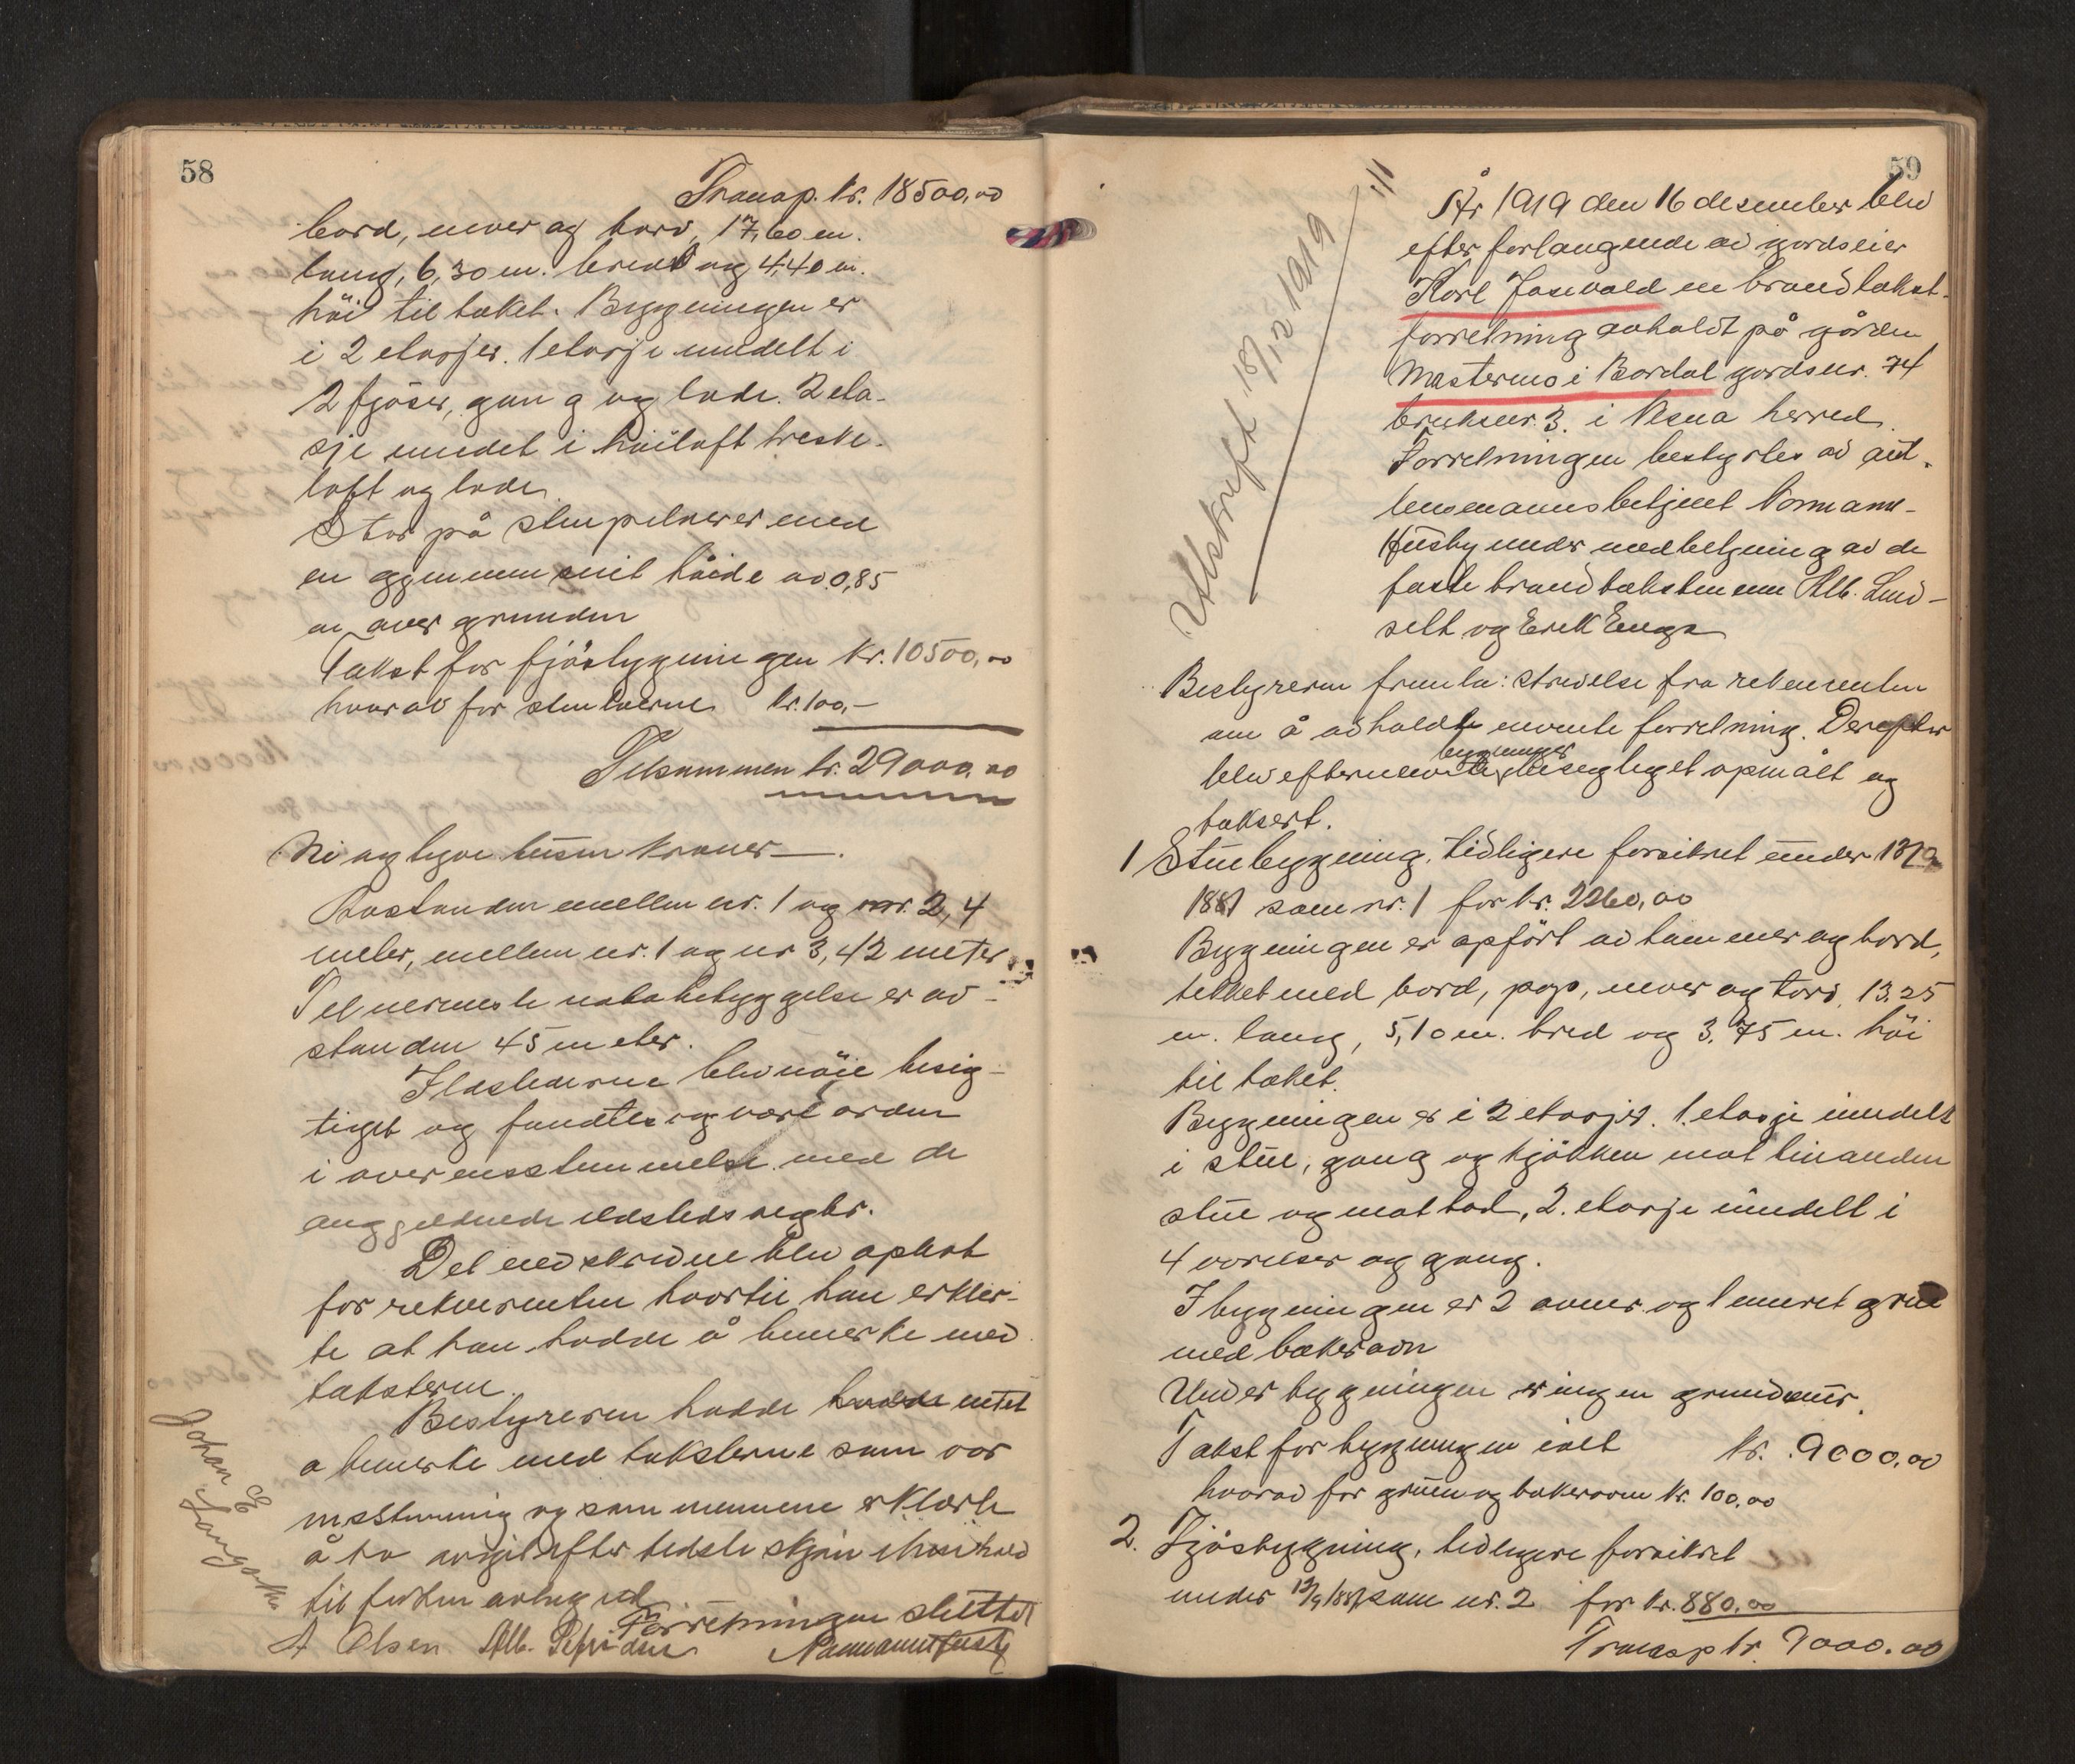 58
Transp. kr. 18500,00
bord, never og torv, 17,60 m.
lang, 6,30 m. bred og 4,40 m.
höi til taket. Bygningen er
i 2 etasjer. 1 etasje inndelt i
2 fjöser, gang og lade. 2 eta-
sje inndel i höiloft treske-
loft og lade.
Står på stenpilarer med
en gjennemsnit höide av 0,85
m over grunden
Takst for fjösbygningen kr. 10500,00
hvorav for stenkarene kr. 100,-
Tilsammen kr. 29000,00
Ni og tyve tusen kroner —.
Avstanden mellem nr. 1 og nr. 2, 4
meter, mellem nr. 1 og nr 3, 42 meter
Til nærmeste nabobebyggelse er av-
standen 45 meter.
Ildstederne blev nöie besig-
tiget og fandtes og være orden
i overensstemmelse med de
anggjeldnede ildstedsregler.
Det nedskrevne blev oplest
for rekvirenten hvortil han erklær-
te at han hadde å bemerke med
taksterne.
Bestyreren hadde intet
a bemerke med taksterne som var
enstemmig og som mennene erklærte
å ha avgit efter bedste skjön i henhold
til forhen avlagt ed
Forretningen sluttet
A Olsen Alb. Normann Husby
Johan E Langaker
59
År 1919 den 16 desember blev
efter forlangende av gardseier
Karl Jasevold en brandtakst-
forretning avholdt på gården
Mastermo i Bardal gardsnr. 74
bruksnr. 3. i Nesna herred.
Forretningen bestyrtes av aut.
lensmannsbetjent Normann-
Husby under medbetjening av de
faste brandtakstmenn Alb. Lind-
selt og Erik Enga
Utskrift 18/12 1919
Bestyreren fremla: skrivelse fra rekvirenten
om å avholde nevnte forretning. Derefter
blev efternevnte bygninger besigtiget opmålt og
taksert.
1 Stuebygning, tidligere forsikret under 13/9
1881 som nr. 1 for kr. 2260,00
Bygningen er opfört av tömmer og bord,
tekket med bord, pap, never og torv, 13,25
m. lang, 5,10 m. bred og 3,75 m. höi
til taket.
Bygningen er i 2 etasjer. 1. etasje inndelt
i stue, gang og kjökken mot hinanden
stue og matbod, 2. etasje inndelt i
4 værelser og gang.
I bygningen er 2 ovner og 1 muret grue
med bakerovn
Under bygningen er ingen grundmur.
Takst for bygningen ialt kr. 9000,00
hvorav for gruen og bakerovn kr. 100,00
2. Fjösbygning, tidligere forsikret
under 13/9 1881 som nr. 2 for kr. 880,00
Transp kr. 9000,00